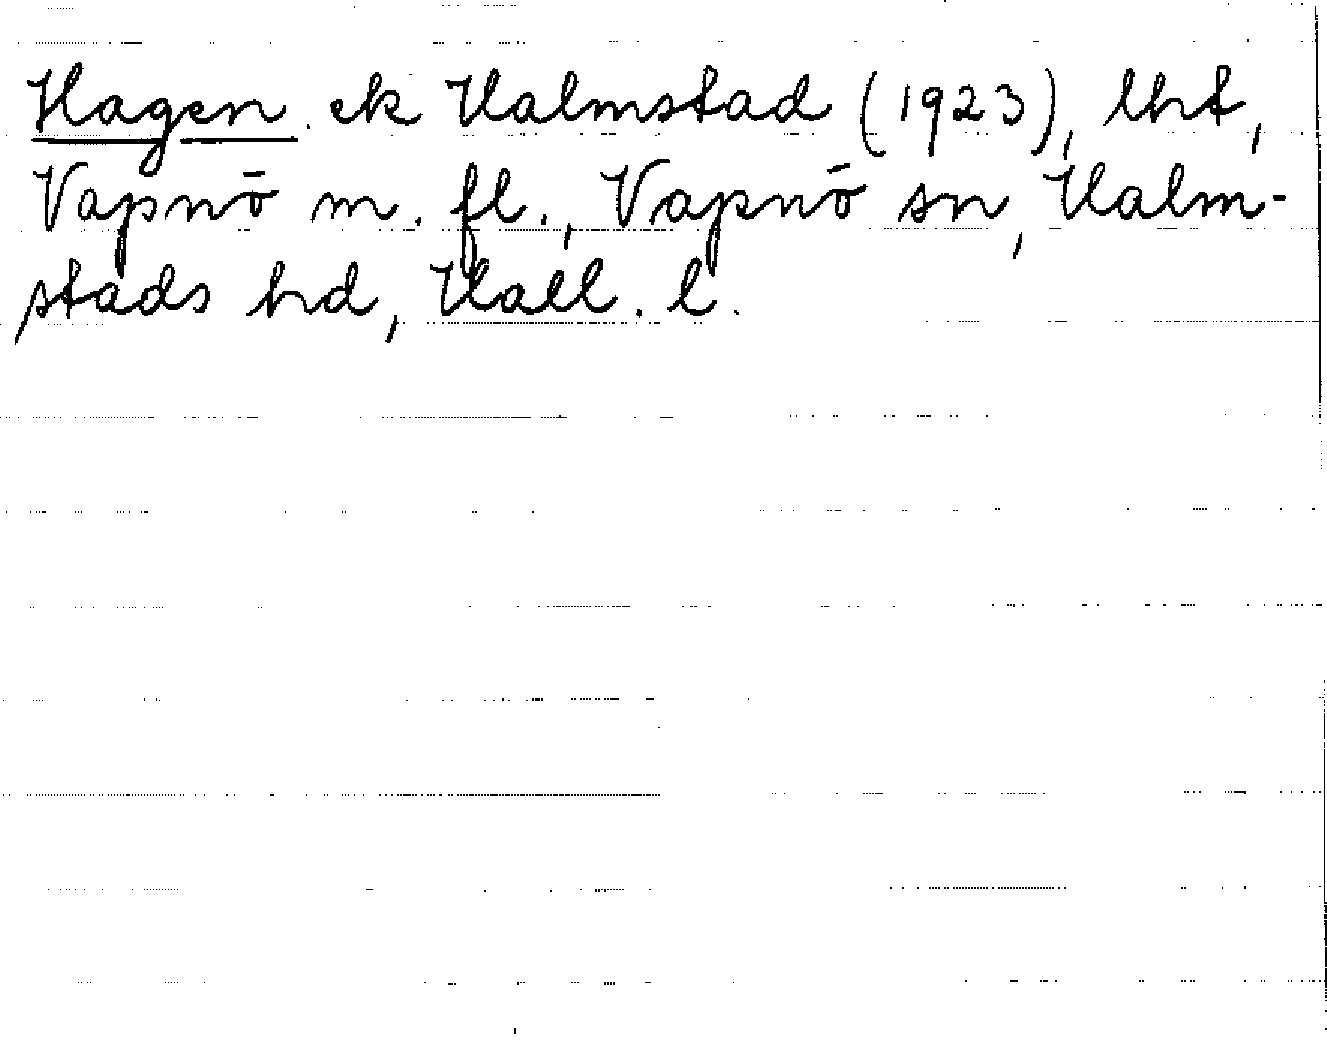 Hagen ek Halmstad (1923), lht,
Vapnö m. fl., Vapnö sn, Halm-
stads hd, Hall. l.